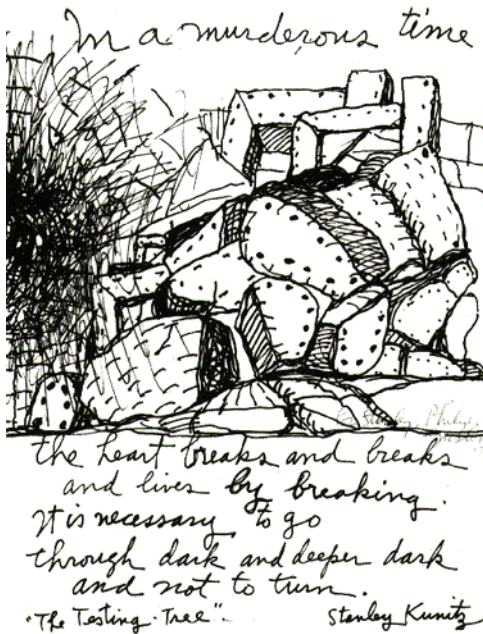 In a murderous time
the heart breaks and breaks
and lives by breaking.
It is necessary to go
through dark and deeper dark
and not to turn.
"The Testing-Tree" Stanley Kunitz